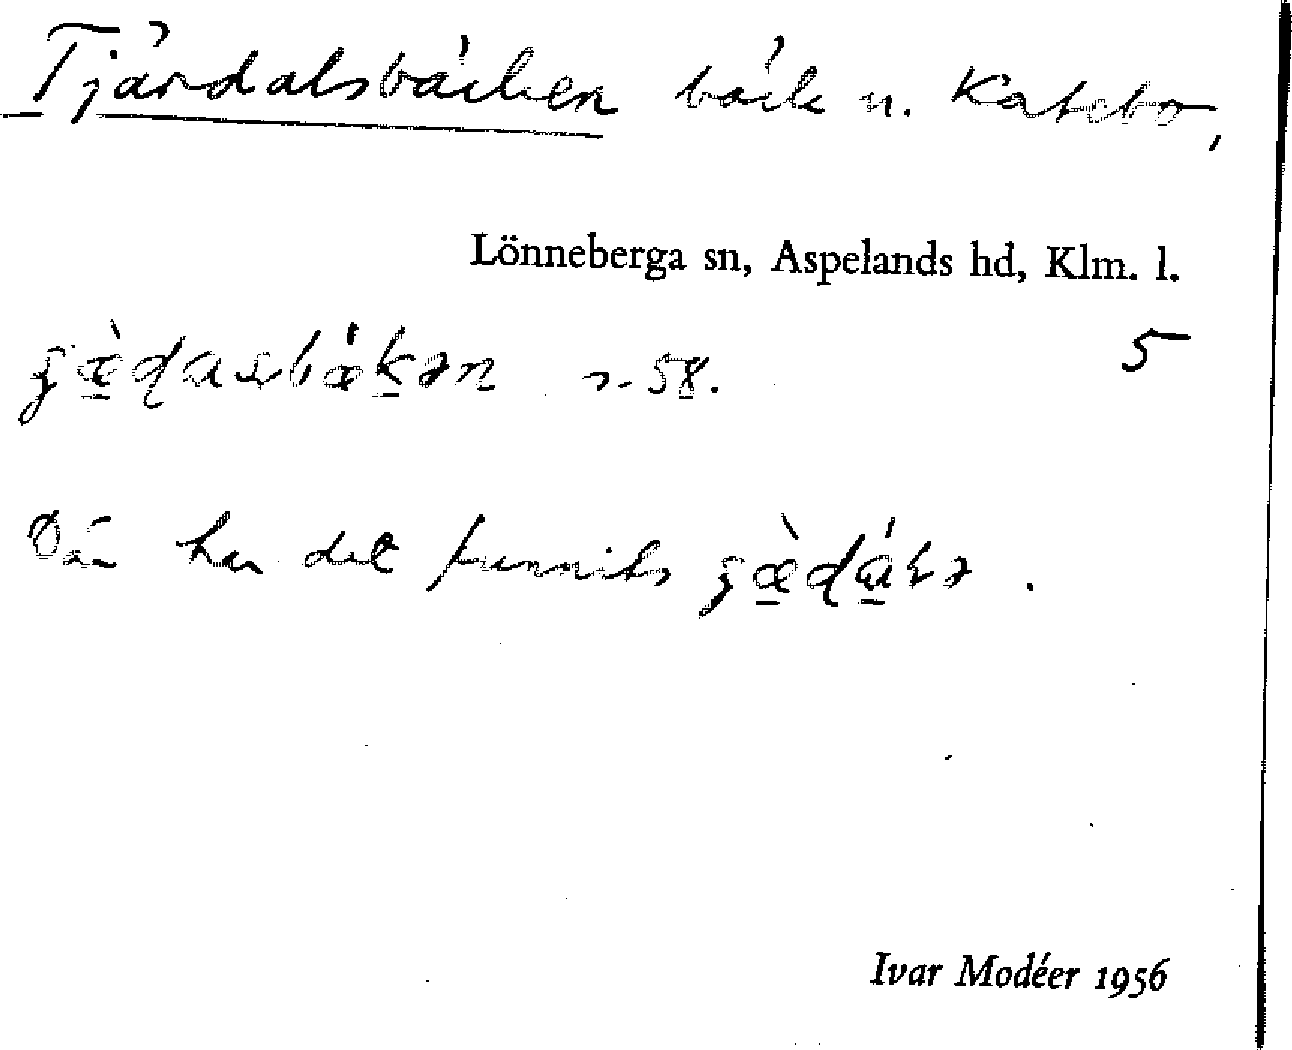 Tjärdalsbäcken bäck n. Katebo,
Lönneberga sn, Aspelands hd, Klm. l.
5
58.
Där har det funnits
Ivar Modéer 1956